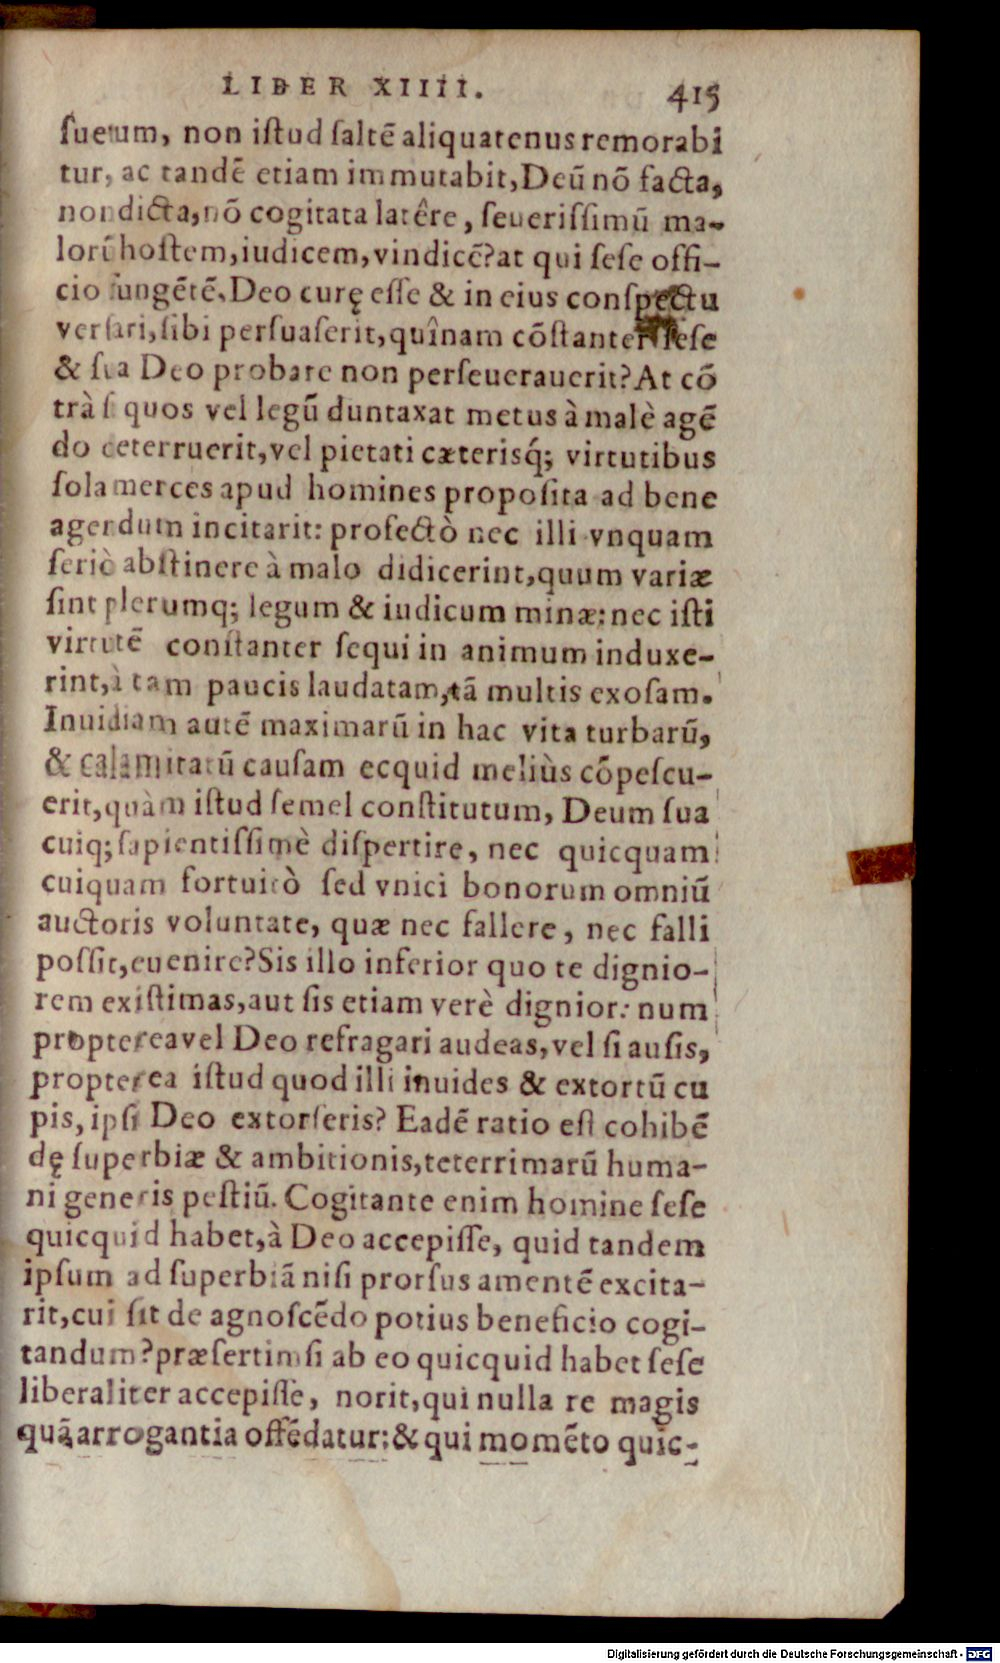 LIBER XIIII. 415
ſuetum, non iſtud ſaltē aliquatenus remorabi
tur, ac tandē etiam immutabit, Deū nō facta,
non dicta, nō cogitata latêre, ſeueriſſimū ma-
lorū hoſtem, iudicem, vindicē? at qui ſeſe offi-
cio fungētē, Deo curę eſſe & in eius conſpectu
verſari, ſibi perſuaſerit, quînam cōſtanter ſeſe
& ſua Deo probare non perſeuerauerit? At cō
trà ſi quos vel legū duntaxat metus à malè agē
do deterruerit, vel pietati cæterisq́; virtutibus
ſola merces apud homines propoſita ad bene
agendum incitarit: profectò nec illi vnquam
ſeriò abſtinere à malo didicerint, quum variæ
ſint plerumq; legum & iudicum minæ: nec iſti
virtutē conſtanter ſequi in animum induxe-
rint, à tam paucis laudatam, tā multis exoſam.
Inuidiam autē maximarū in hac vita turbarū,
& calamitatū cauſam ecquid meliùs cōpeſcu-
erit, quàm iſtud ſemel conſtitutum, Deum ſua
cuiq; ſapientiſſimè diſpertire, nec quicquam
cuiquam fortuitò ſed vnici bonorum omniū
auctoris voluntate, quæ nec fallere, nec falli
poſſit, euenire? Sis illo inferior quo te dignio-
rem exiſtimas, aut ſis etiam verè dignior: num
propterea vel Deo refragari audeas, vel ſi auſis,
propterea iſtud quod illi inuides & extortū cu
pis, ipſi Deo extorſeris? Eadē ratio eſt cohibē
dę ſuperbiæ & ambitionis, teterrimarū huma-
ni generis peſtiū. Cogitante enim homine ſeſe
quicquid habet, à Deo accepiſſe, quid tandem
ipſum ad ſuperbiā niſi prorſus amentē excita-
rit, cui ſit de agnoſcēdo potius beneficio cogi-
tandum? præſertim ſi ab eo quicquid habet ſeſe
liberaliter accepiſſe, norit, qui nulla re magis
quā arrogantia offēdatur: & qui momēto quic-
Digitalisierung gefördert durch die Deutsche Forschungsgemeinschaft - DFG